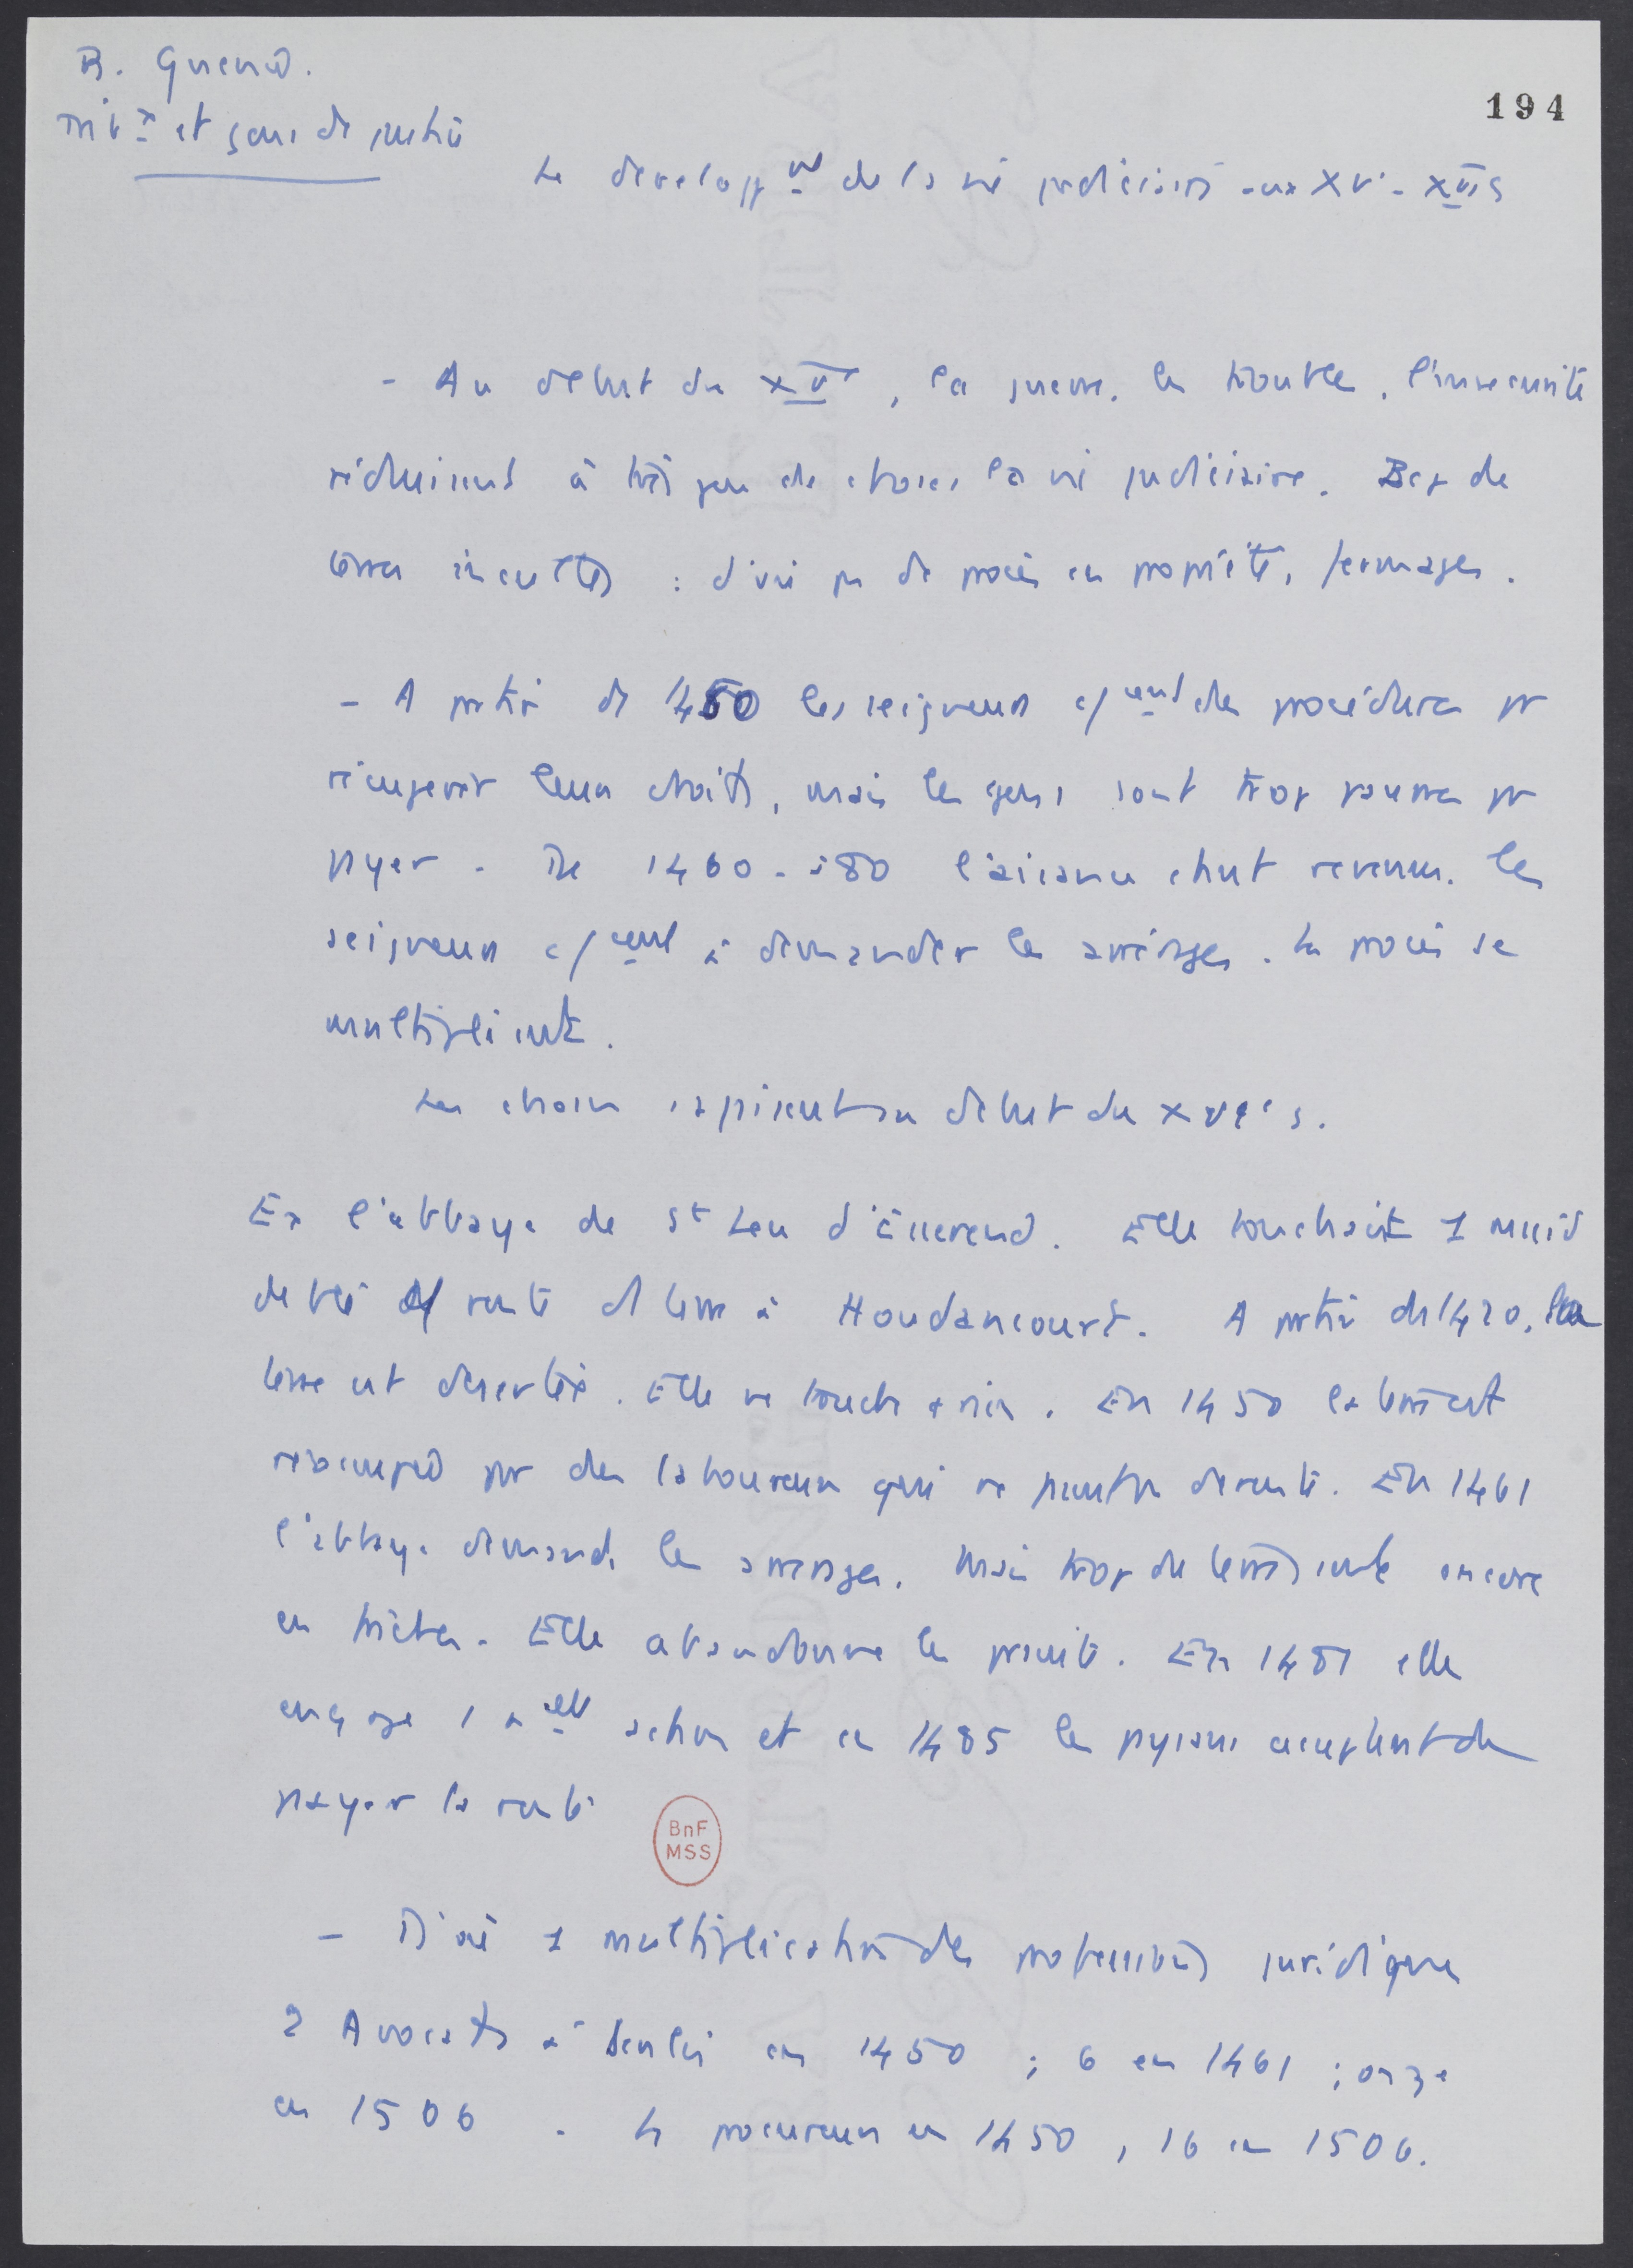 B. Guenée.
194
Trib.x et gens de justice
Le developpt de la vie judiciaire aux XVe-XVIe s
- Au début du XVe, la guerre, les troubles, l'insécurité
réduisent à très peu de choses la vie judiciaire. Bcp de
terres incultes : d'où peu de procès en propriété, fermages.
- A partir de 1450 les seigneurs cent des procédures pr
récupérer leurs droits, mais les gens sont trop pauvres pr
payer. De 1460-à 80 l'aisance étant revenue. Les
seigneurs cent à demander les arriérages. Les procès se
multiplient.
Les choses s'apaisent au début du XVIe s.
Ex l'abbaye de St Leu d'Esserent. Elle touchait 1 muid
de blé de rente de terre à Houdancourt. A partir de 1420, la
terre est désertée. Elle ne touche + rien. En 1450 la terre est
réoccupée par des laboureurs qui ne paient pas de rente. En 1461
l'abbaye demande les arrérages. Mais trop de terres sont encore
en friches. Elle abandonne les poursuites. En 1481 elle
engage 1 nelle action et en 1485 les paysans acceptent de
payer la rente
BnF
MSS
- D'où 1 multiplication des professions juridiques
2 Avocats à Senlis en 1450 ; 6 en 1461 ; onze
en 1506. 4 procureurs en 1450, 16 en 1506.